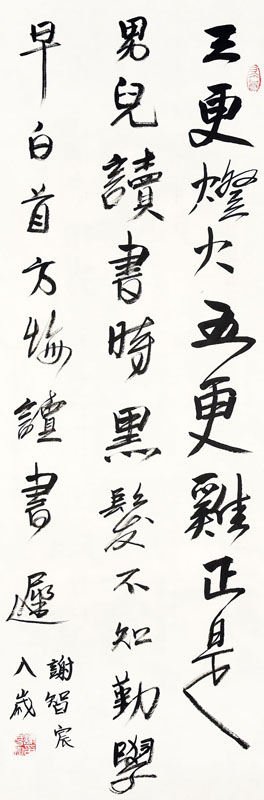 三更燈火五更雞正是
男兒讀書時黑髮不知勤學
早白首方悔讀書遲
謝智宸
八歲